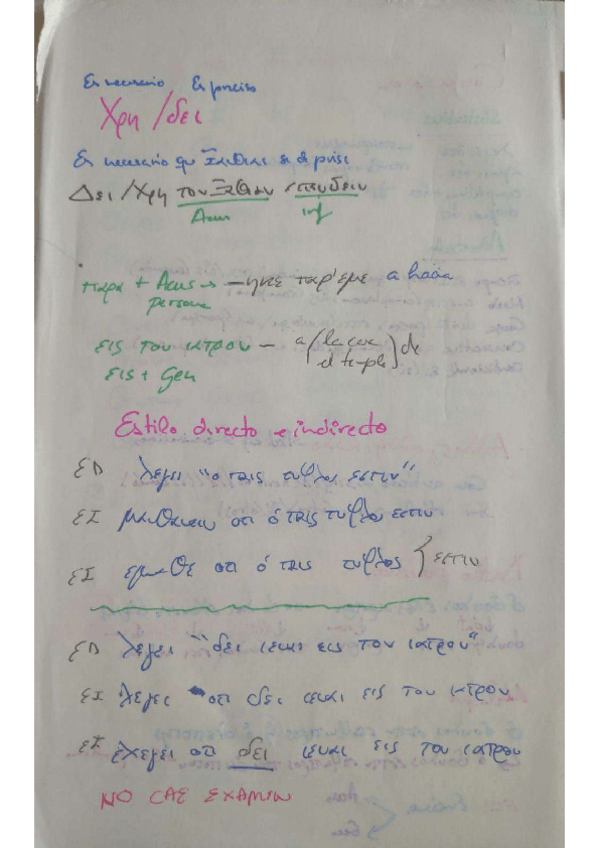 Es necesario Es preciso
Χρη / δει
Es necesario que
Δει / Χρη τον Ξανθιαν σπευδειν
Acus inf
παρα + Acus → – ηκε παρ' εμε a hacia
persona
εις του ιατρου – a / la casa
el templo } de
εις + Gen
Estilo directo e indirecto
ED λεγει "ο παις τυφλος εστιν"
EI μανθανει οτι ὁ παις τυφλος εστιν
EI εμαθε οτι ὁ παις τυφλος } εστιν
ED λεγει "δει ιεναι εις του ιατρου"
EI λεγει οτι δει ιεναι εις του ιατρου
EI ελεγει οτι δει ιεναι εις του ιατρου
NO CAE EXAMEN